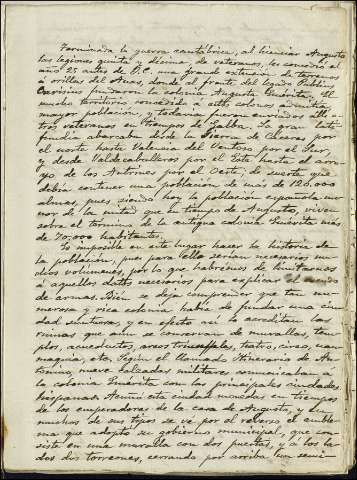 Terminada la guerra cantábrica, al licenciar Augusto
las legiones quinta y décima, de veteranos, les concedió el
año 25 antes de J.C. una grande extension de terrenos
á orillas del Anas, donde al frente del legado Publio
Carisius fundaron la colonia Augusta Emérita. El
mucho territorio concedido á estos colonos admitia
mayor poblacion, y todavia fueron enviados allí o-
tros veteranos en tiempo de Galba. La gran esten-
sion abarcaba desde la Sierra de Chavas por
el norte hasta Valencia del Ventoso por el Sur,
y desde Valdecaballeros por el Este hasta el arro-
yo de los por el Oeste; de suerte que
debia contener una poblacion de más de 120.000
almas, pues siendo hoy la poblacion española me-
nor de la mitad que en tiempo de Augusto, viven
sobre el termino de la antigua colonia Emérita más
de 70.000 habitantes.
Es imposible en este lugar hacer la historia de
la poblacion, pues para ello serian necesarios mu-
chos volumenes, por lo que habremos de limitarnos
á aquellos datos necesarios para explicar el escudo
de armas. Bien se deja comprender que tan nu-
merosa y rica colonia habia de fundar una ciu-
dad suntuosa, y en efecto así lo acreditan las
ruinas que aún se conservan de murallas, tem-
plos, acueductos, arcos triunfales, teatro, circo, nau-
maquia, etc. Segun el llamado Itinerario de An-
tonino, nueve calzadas militares comunicaban á
la colonia Emérita con las principales ciudades
hispanas. Acuñó esta ciudad monedas en tiempos
de los emperadores de la casa de Augusto, y en
muchos de sus tipos se vé por el reverso el emble-
ma que adoptó su gobierno municipal, que con-
siste en una muralla con dos puertas, y á los la-
dos dos torreones, cerrando por arriba un semi-